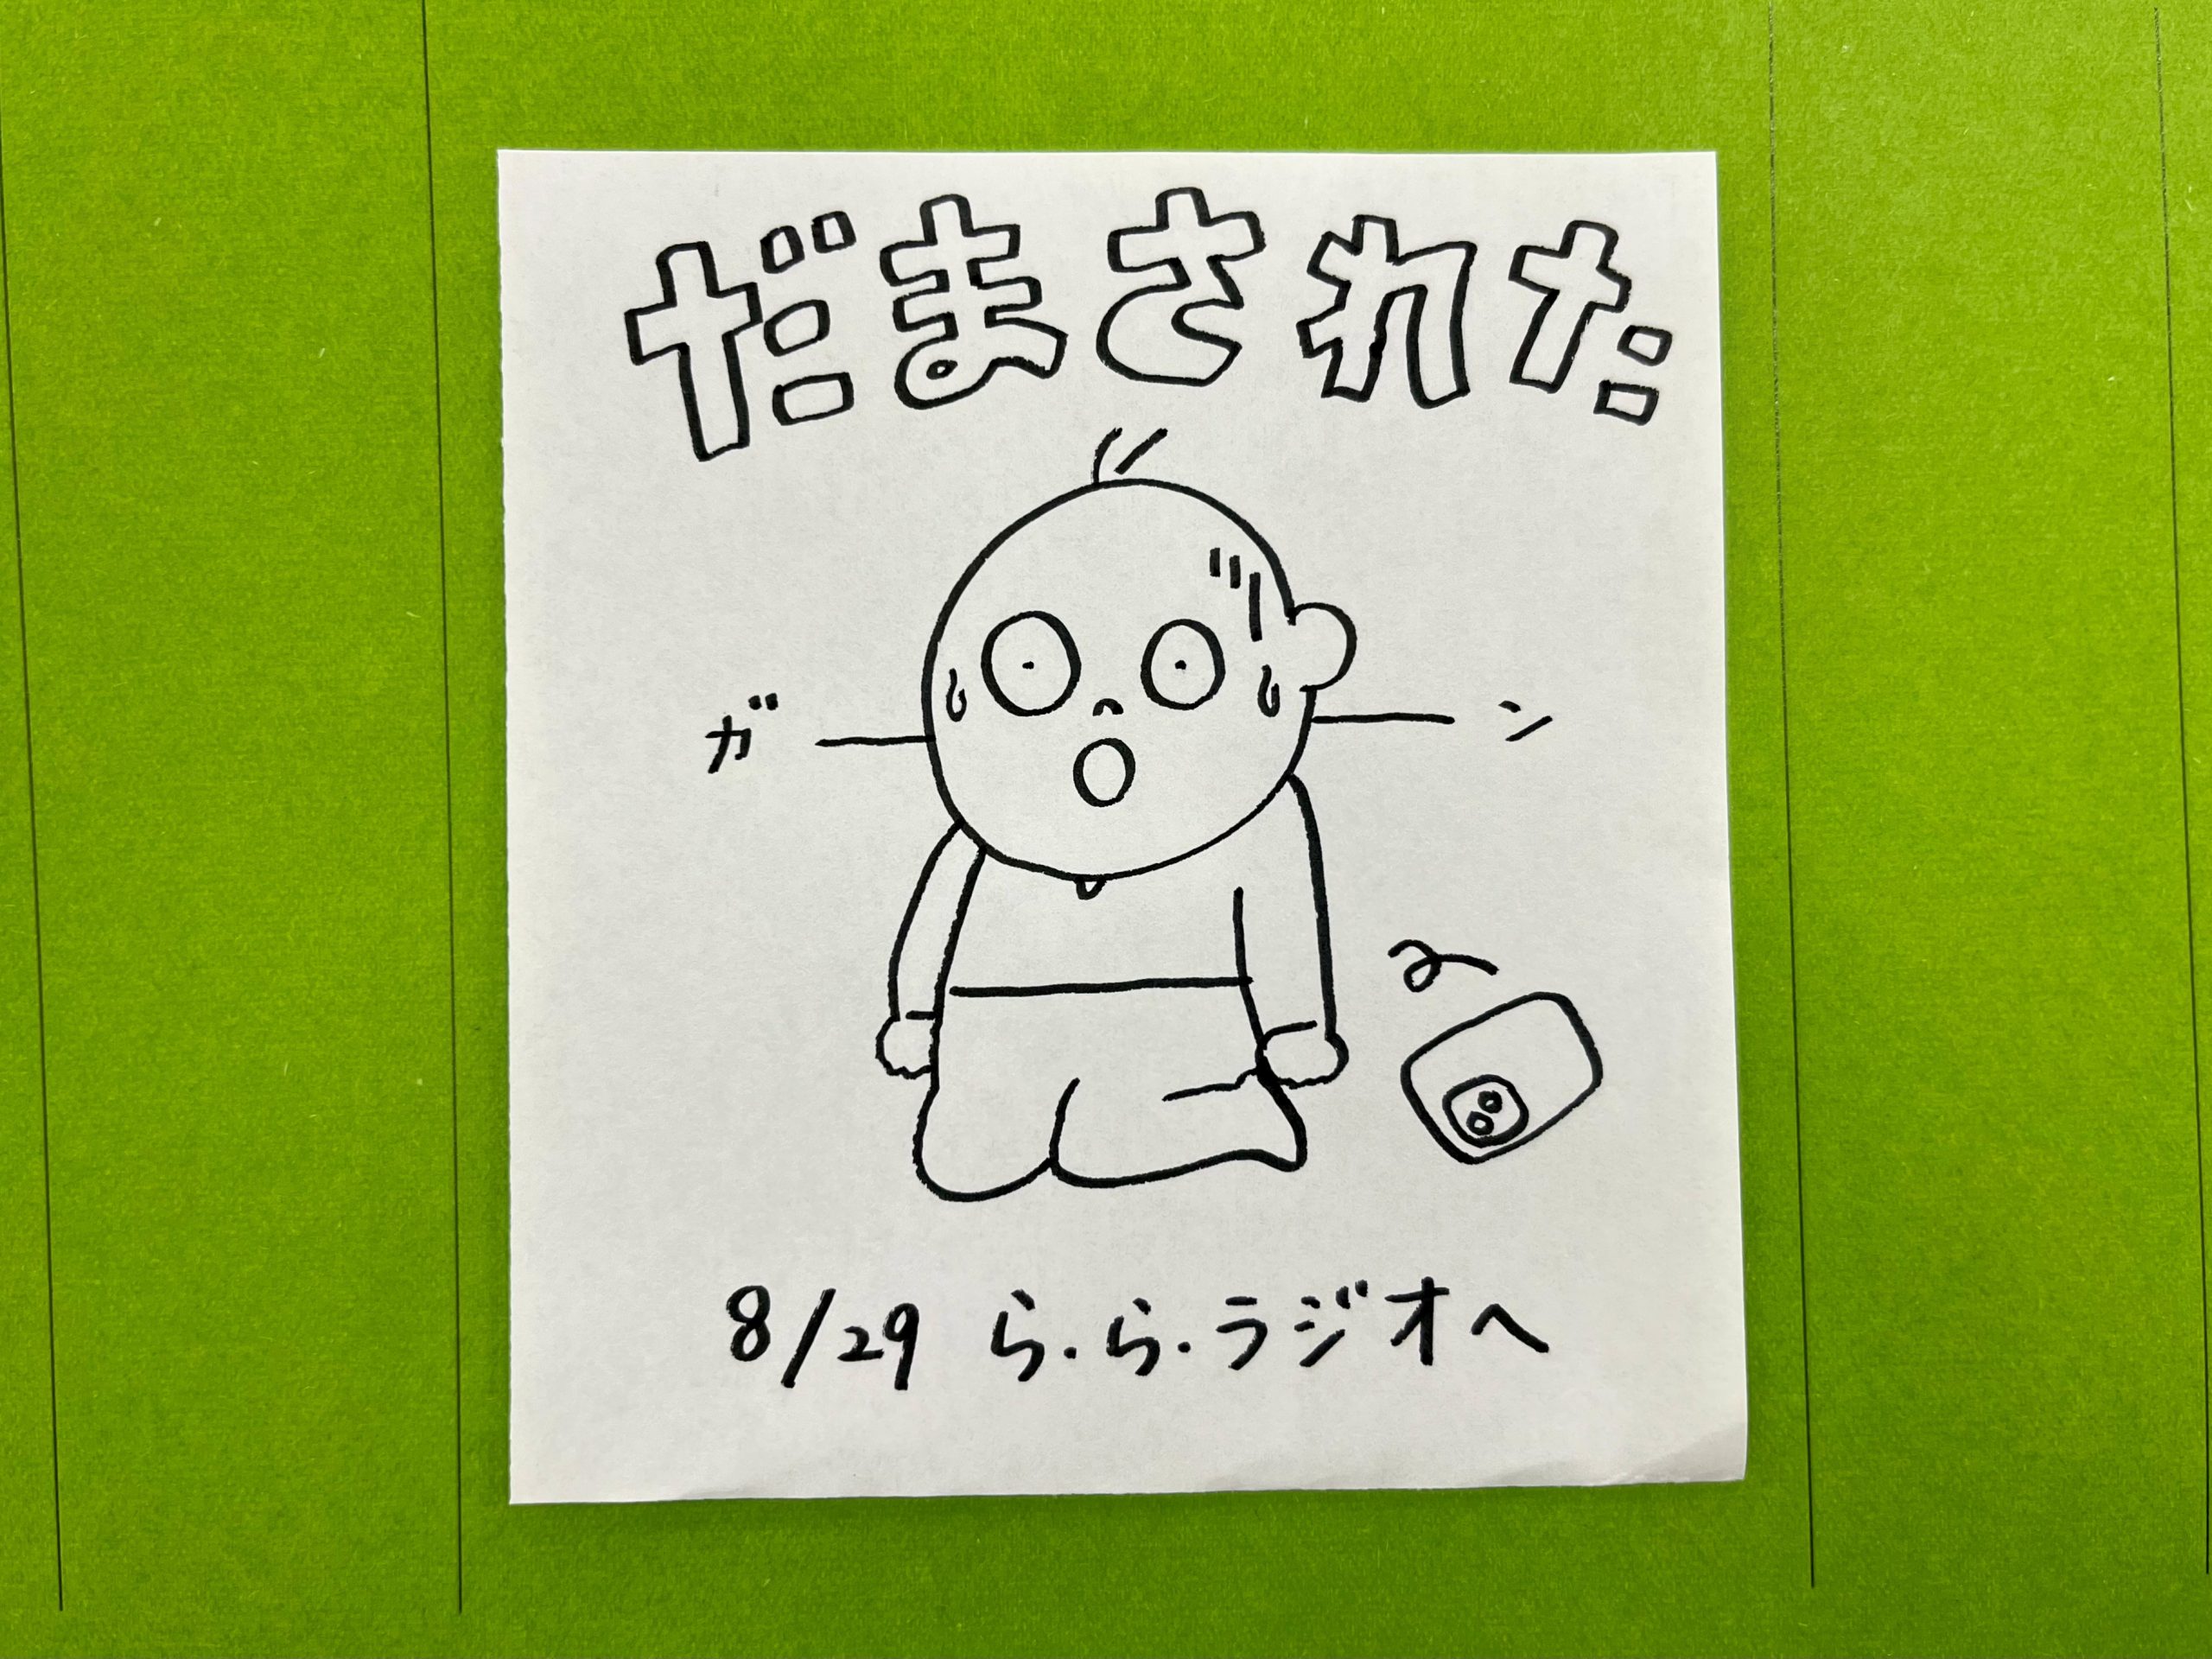 だまされた
ガーーン
8/29 ら・ら・ラジオへ